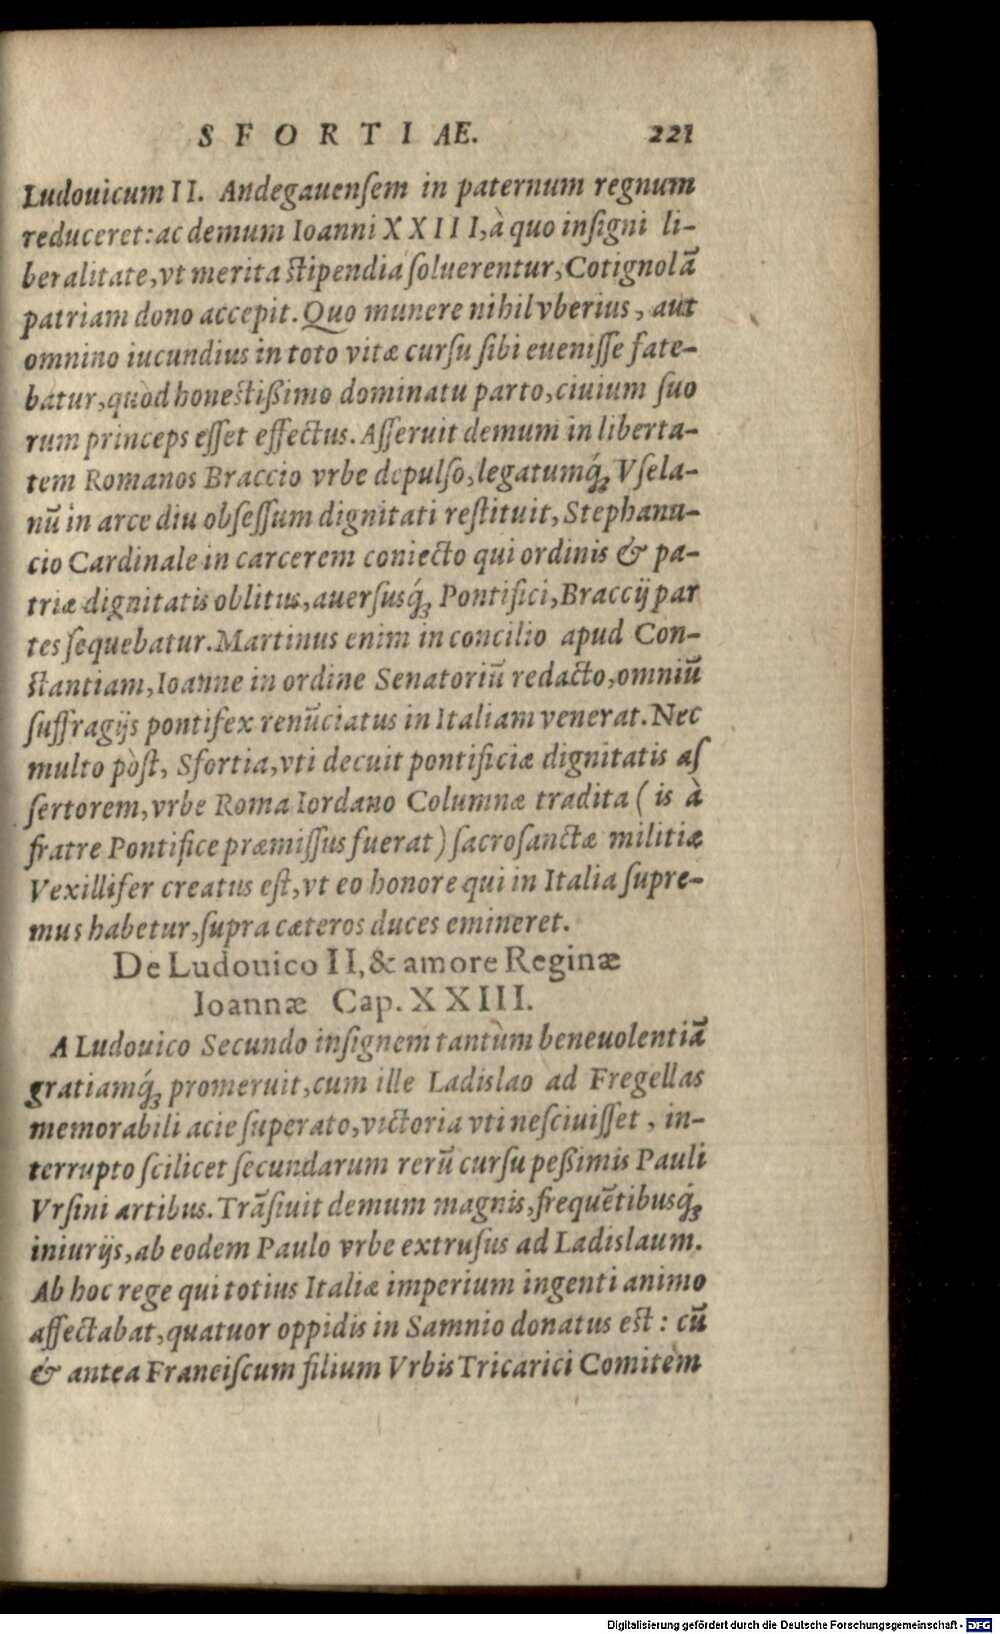 SFORTIAE. 221
Ludouicum II. Andegauenſem in paternum regnum
reduceret: ac demum Ioanni XXIII, à quo inſigni li-
beralitate, vt merita ſtipendia ſoluerentur, Cotignolā
patriam dono accepit. Quo munere nihil vberius, aut
omnino iucundius in toto vitæ curſu ſibi eueniſſe fate-
batur, quòd honeſtißimo dominatu parto, ciuium ſuo
rum princeps eſſet effectus. Aſſeruit demum in liberta-
tem Romanos Braccio vrbe depulſo, legatumq́; Vſela-
nū in arce diu obſeſſum dignitati reſtituit, Stephanu-
cio Cardinale in carcerem coniecto qui ordinis & pa-
triæ dignitatis oblitus, auerſusq́; Pontifici, Braccij par
tes ſequebatur. Martinus enim in concilio apud Con-
ſtantiam, Ioanne in ordine Senatoriū redacto, omniū
ſuffragijs pontifex renūciatus in Italiam venerat. Nec
multo pòſt, Sfortia, vti decuit pontificiæ dignitatis aſ
ſertorem, vrbe Roma Iordano Columnæ tradita (is à
fratre Pontifice præmiſſus fuerat) ſacroſanctæ militiæ
Vexillifer creatus eſt, vt eo honore qui in Italia ſupre-
mus habetur, ſupra cæteros duces emineret.
De Ludouico II, & amore Reginæ
Ioannæ Cap. XXIII.
A Ludouico Secundo inſignem tantùm beneuolentiā
gratiamq́; promeruit, cum ille Ladislao ad Fregellas
memorabili acie ſuperato, victoria vti neſciuiſſet, in-
terrupto ſcilicet ſecundarum rerū curſu peßimis Pauli
Vrſini artibus. Trāſiuit demum magnis, frequētibusq́;
iniurijs, ab eodem Paulo vrbe extruſus ad Ladislaum.
Ab hoc rege qui totius Italiæ imperium ingenti animo
affectabat, quatuor oppidis in Samnio donatus eſt: cū
& antea Franciſcum filium Vrbis Tricarici Comitem
Digitalisierung gefördert durch die Deutsche Forschungsgemeinschaft - DFG